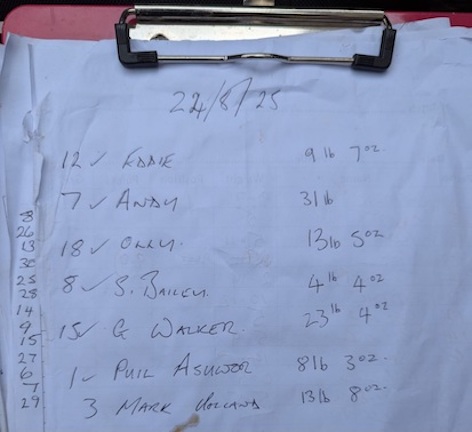 24/8/25
12 ✓ EDDIE 9 lb 7 oz.
7 ✓ ANDY 31 lb
18 ✓ OLLY. 13 lb 5 oz
8 ✓ S. BAILEY. 4 lb 4 oz
15 ✓ G WALKER. 23 lb 4 oz
1 ✓ PHIL 8 lb 3 oz.
3 MARK HOLLAND 13 lb 8 oz.
8
26
13
30
25
28
14
9
15
27
6
7
29